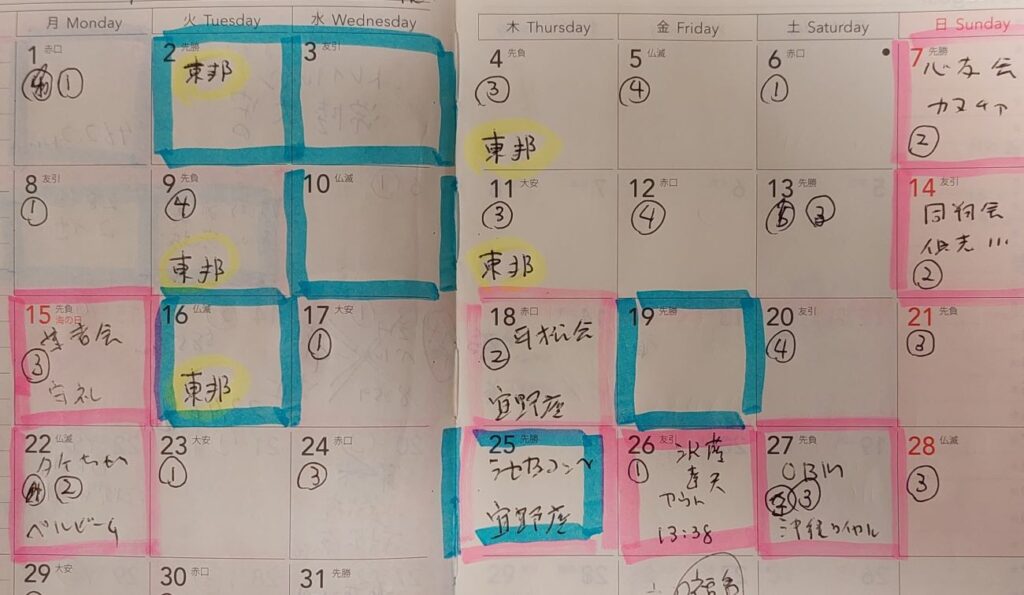 月 Monday
火 Tuesday
水 Wednesday
木 Thursday
金 Friday
土 Saturday
日 Sunday
1 赤口
①
2 先勝
東邦
3 友引
4 先負
③
東邦
5 仏滅
④
6 赤口
①
7 先勝
心友会
カヌチャ
②
8 友引
①
9 先負
④
東邦
10 仏滅
11 大安
③
東邦
12 赤口
④
13 先勝
③
14 友引
②
15 先負
海の日
③
守礼
16 仏滅
東邦
17 大安
①
18 赤口
②
宜野座
19 先勝
20 友引
④
21 先負
③
22 仏滅
②
ベルビーチ
23 大安
①
24 赤口
③
25 先勝
宜野座
26 友引
①
13:38
27 先負
③
28 仏滅
③
29 大安
30 赤口
31 先勝